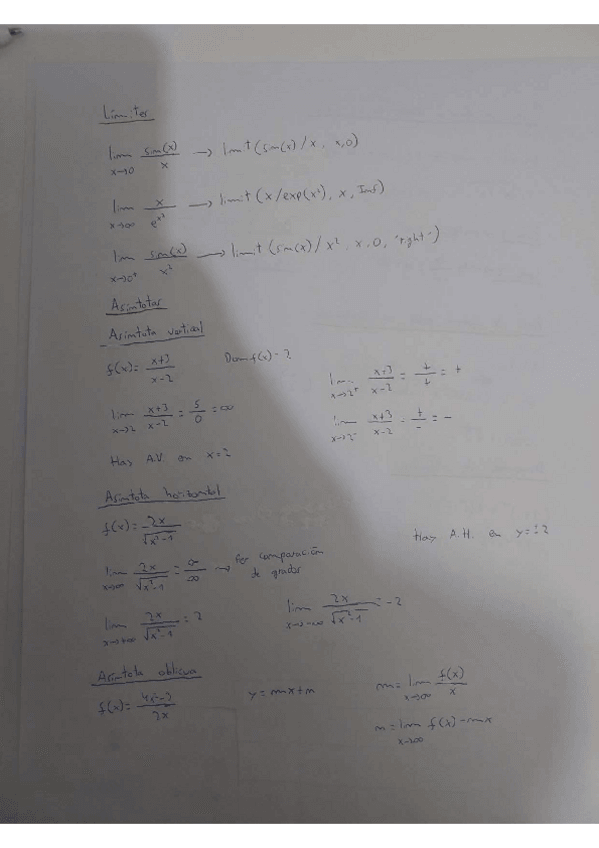 Límites
lim x→0 sin(x)/x → limit(sin(x)/x, x,0)
lim x→∞ x/e^x² → limit(x/exp(x²), x, Inf)
lim x→0⁺ sin(x)/x² → limit(sin(x)/x², x,0, 'right')
Asíntotas
Asíntota vertical
f(x)= x+3/x-2 Dom f(x)-2
lim x→2⁺ x+3/x-2 = +/+ = +
lim x→2 x+3/x-2 = 5/0 = ∞
lim x→2⁻ x+3/x-2 = +/- = -
Hay A.V. en x=2
Asíntota horizontal
f(x)= 2x/√x²-1
Hay A.H. en y=±2
lim x→∞ 2x/√x²-1 = ∞/∞ → Por comparación
de grados
lim x→+∞ 2x/√x²-1 = 2
lim x→-∞ 2x/√x²-1 = -2
Asíntota oblicua
y=mx+n
m= lim x→∞ f(x)/x
n= lim x→∞ f(x)-mx